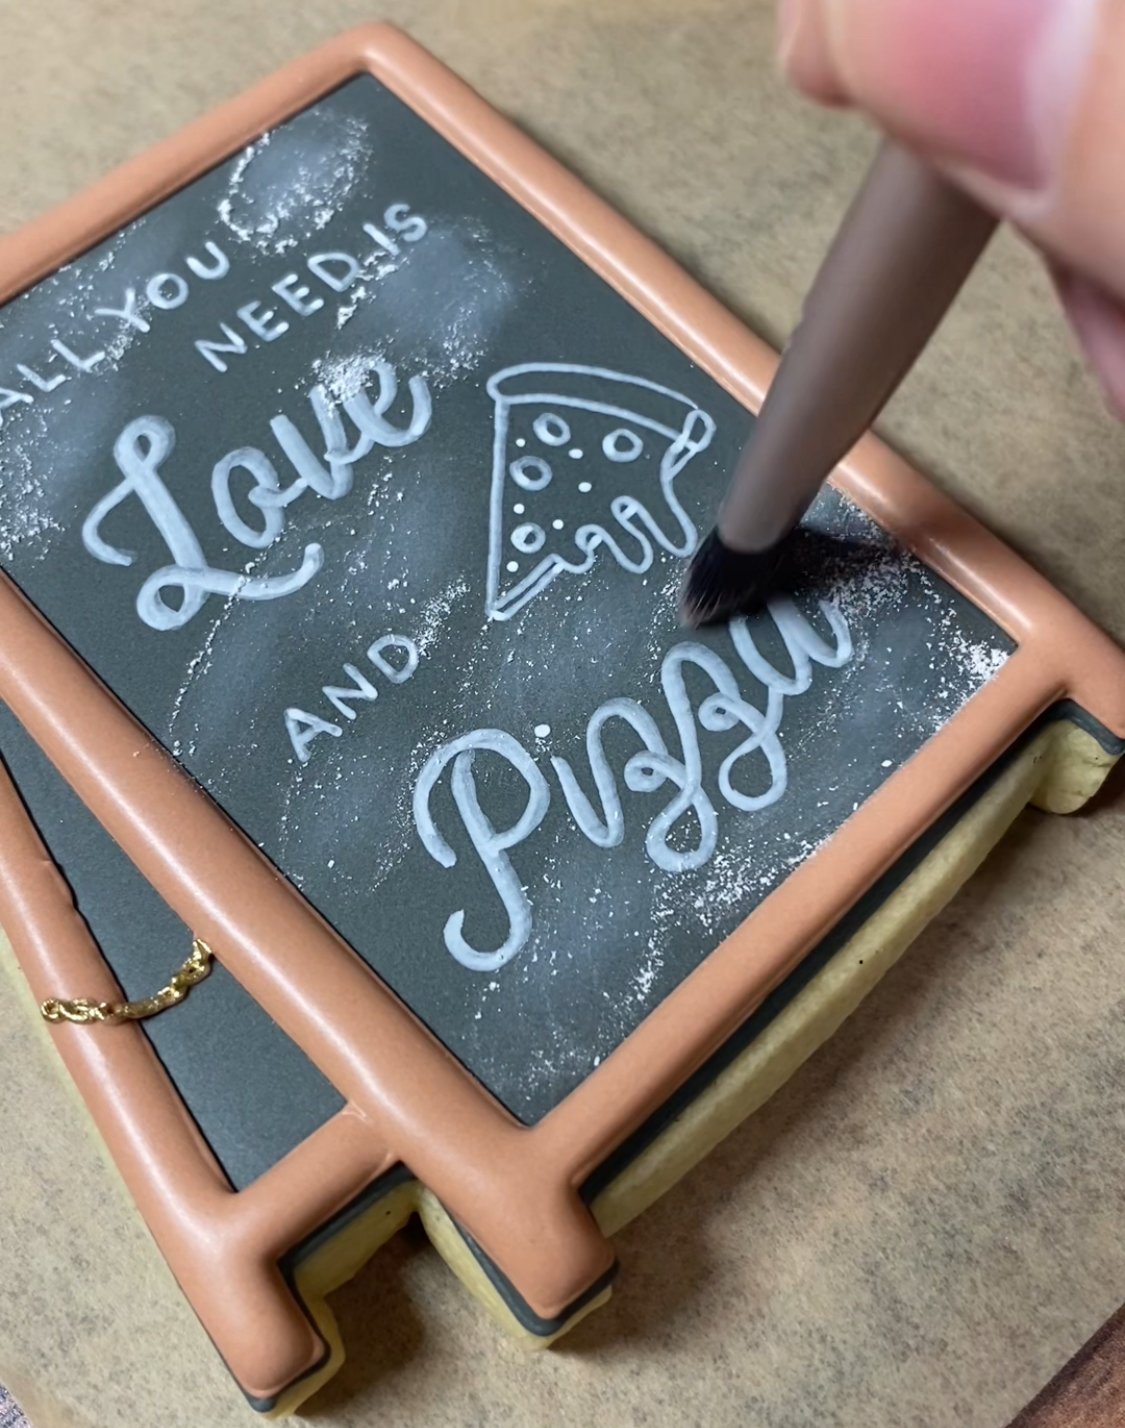 ALL YOU
NEED IS
Love
AND
Pizza